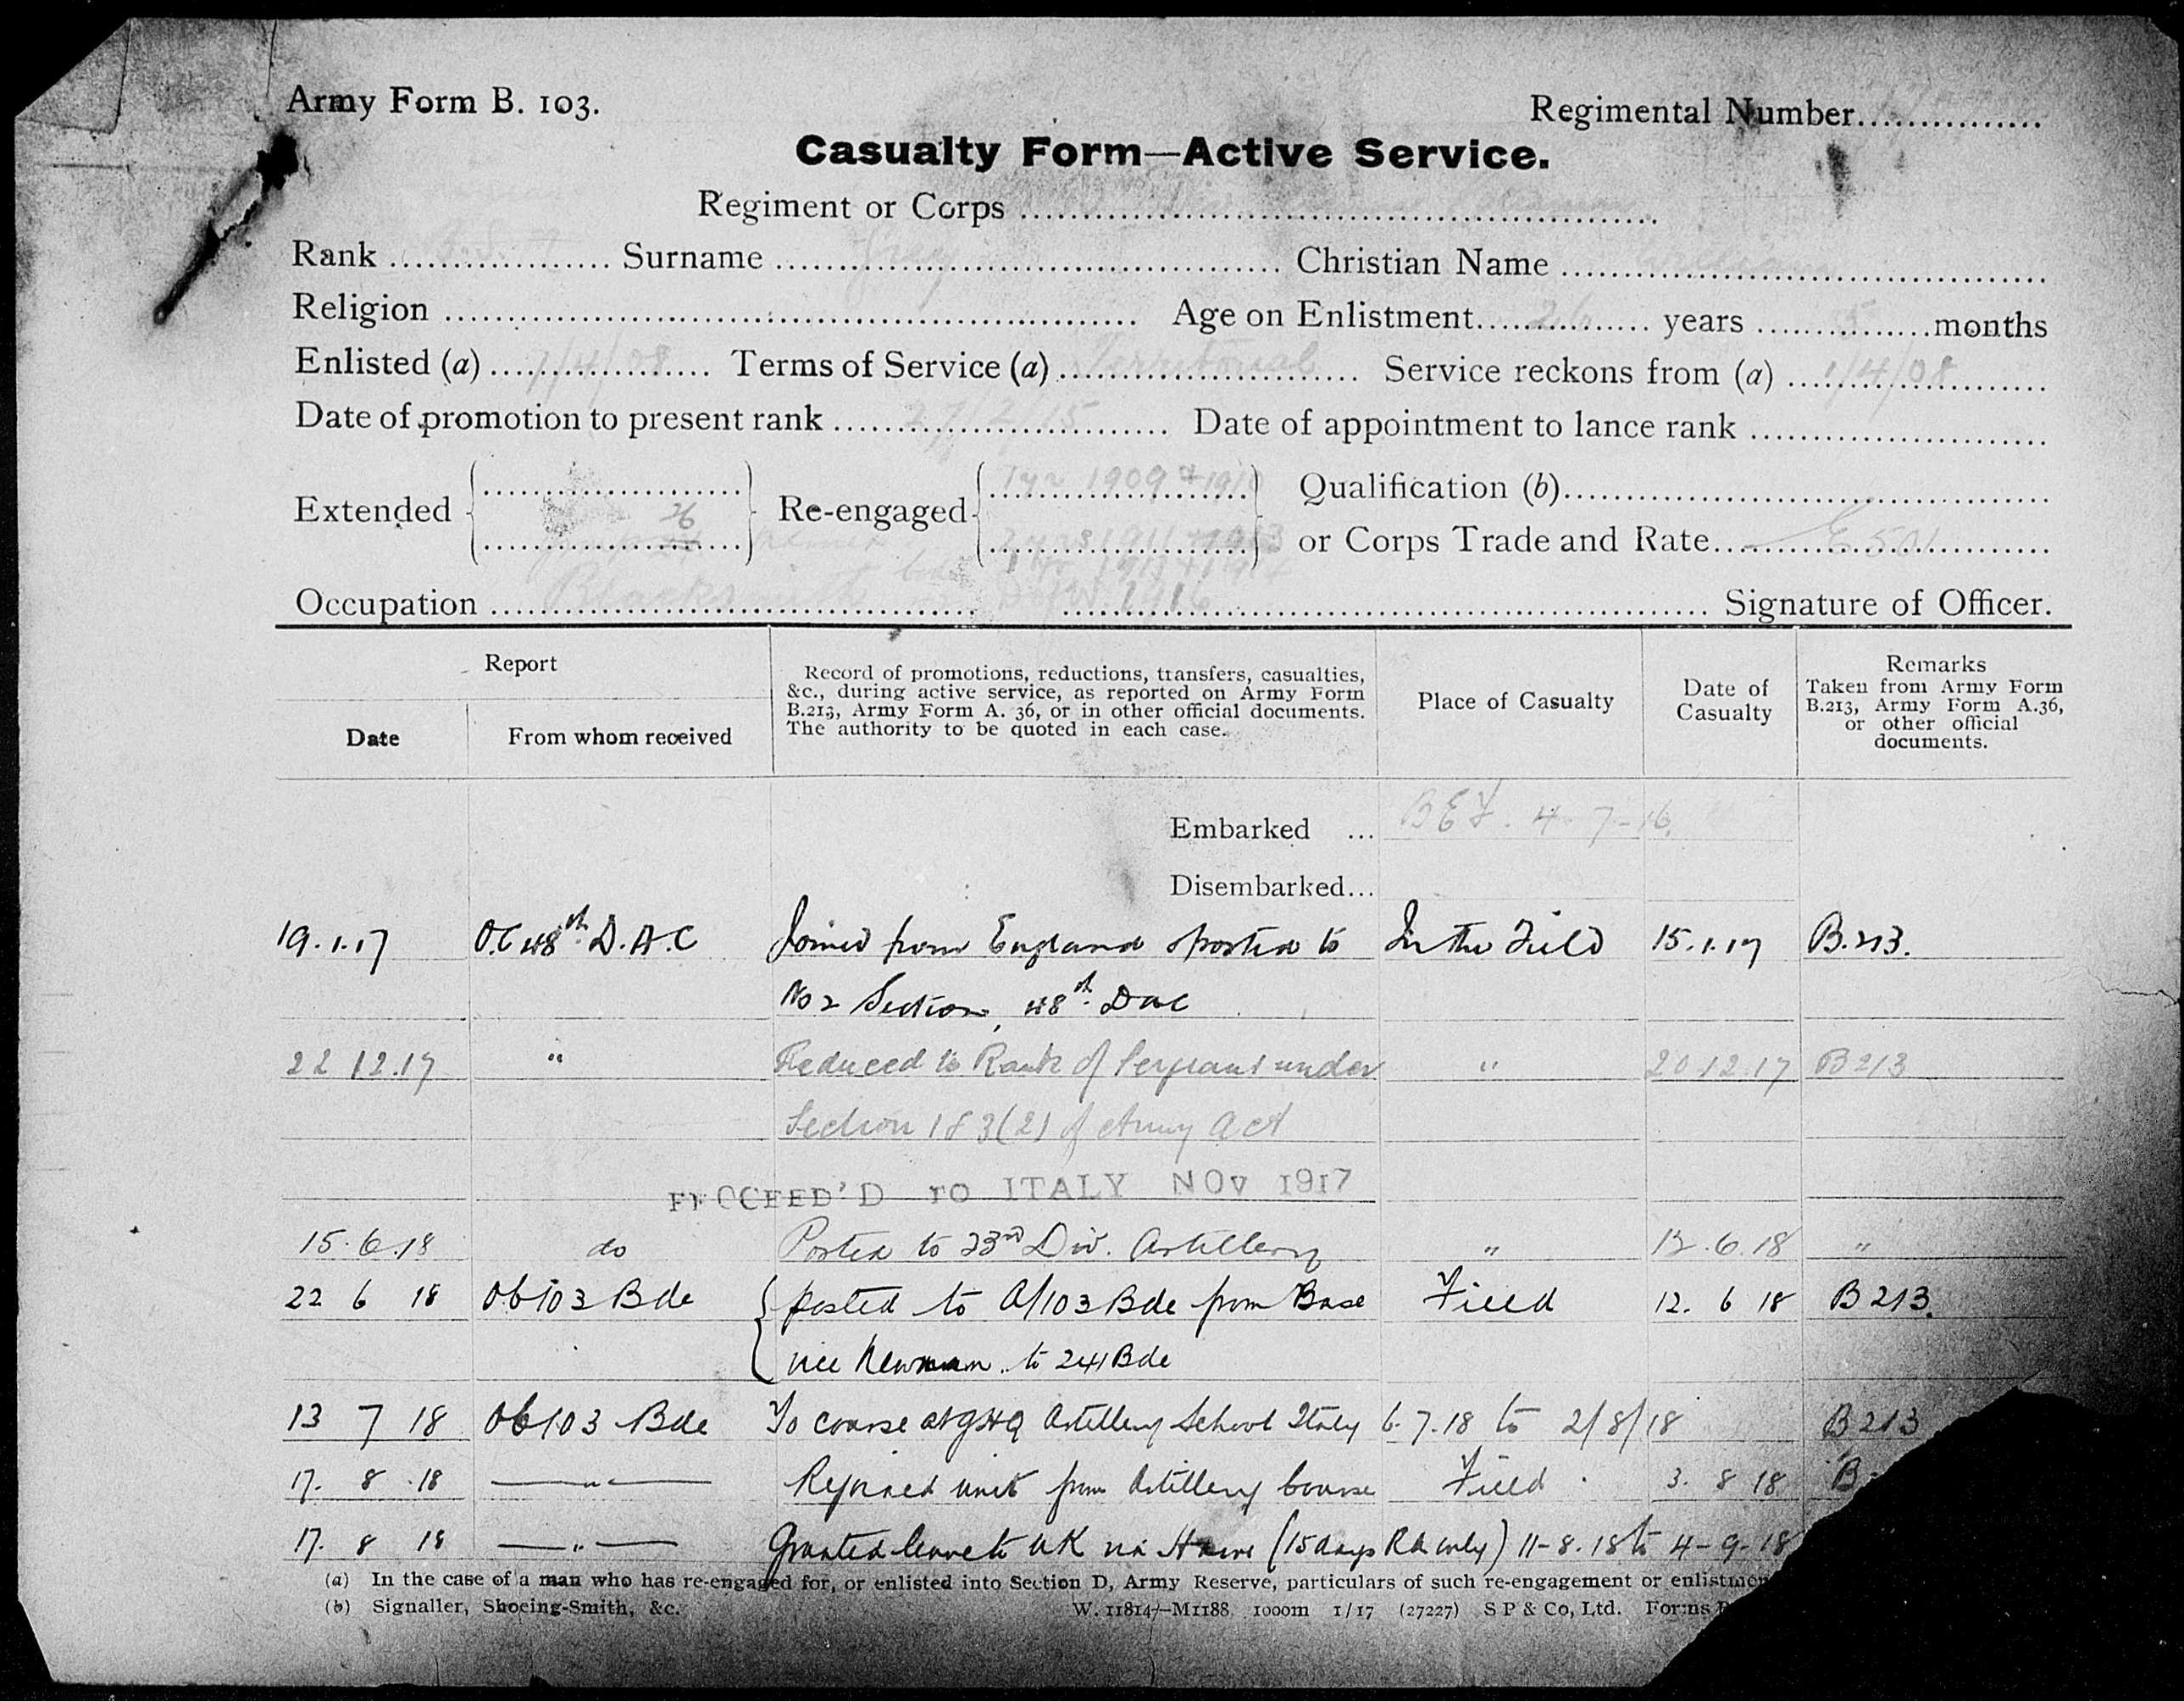 Army Form B. 103.
Regimental Number...............
Casualty Form—Active Service.
Regiment or Corps ...............
Rank ............... Surname ............... Gray ............... Christian Name ............... William
Religion ............... Age on Enlistment............... 26 ............... years ............... 5 ...............months
Enlisted (a) ............... 1/4/08 ............... Terms of Service (a) ............... Territorial ............... Service reckons from (a) ............... 1/4/08
Date of promotion to present rank ............... 27/2/15 ............... Date of appointment to lance rank ...............
Extended Re-engaged 1 yr 1909 + 1910 Qualification (b)...............
26 2 yrs 1911 + 1913 or Corps Trade and Rate...............
1 yr 1913 + 1914
Occupation ............... Blacksmith ............... 1916 ............... Signature of Officer.
Report
Date
From whom received
Record of promotions, reductions, transfers, casualties,
&c., during active service, as reported on Army Form
B.213, Army Form A. 36, or in other official documents.
The authority to be quoted in each case.
Place of Casualty
Date of
Casualty
Remarks
Taken from Army Form
B.213, Army Form A.36,
or other official
documents.
Embarked ... BEF. 4-7-16.
Disembarked...
19.1.17 O.C 48th D.A.C Joined from England & posted to In the Field 15.1.17 B.213.
No 2 Section, 48th DAC
22 12.17 " Reduced to Rank of Sergeant under " 20.12.17 B213
Section 183(2) of Army Act
PROCEED'D TO ITALY NOV 1917
15.6.18 do Posted to 23rd Div. Artillery " 12.6.18 "
22 6 18 OC 103 Bde posted to A/103 Bde from Base Field 12. 6 18 B 213.
vice Newman to 241 Bde
13 7 18 OC 103 Bde To course at GHQ Artillery School Italy 6.7.18 to 2/8/18 B 213
17. 8 .18 " Rejoined unit from Artillery Course Field 3. 8 18 B
17. 8 18 " Granted leave to UK via Havre (15 days only) 11-8.18 to 4-9-18
(a) In the case of a man who has re-engaged for, or enlisted into Section D, Army Reserve, particulars of such re-engagement or
(b) Signaller, Shoeing-Smith, &c.
W. 11814—M1188 1000m 1/17 (27227) S P & Co, Ltd. Forms